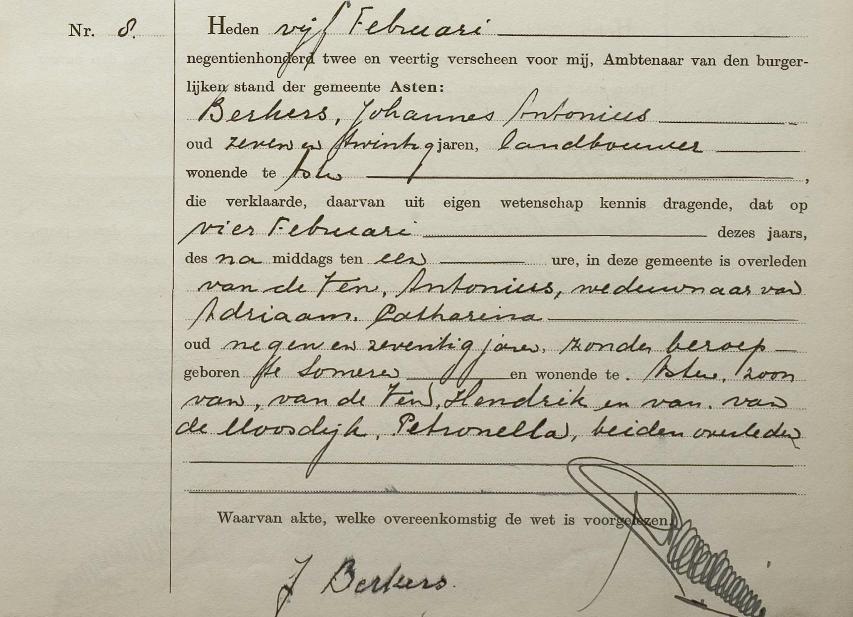 Nr. 8.
Heden vijf Februari
negentienhonderd twee en veertig verscheen voor mij, Ambtenaar van den burger-
lijken stand der gemeente Asten:
Berkers, Johannes Antonius
oud zeven en twintig jaren, landbouwer
wonende te Asten,
die verklaarde, daarvan uit eigen wetenschap kennis dragende, dat op
vier Februari dezes jaars,
des na middags ten een ure, in deze gemeente is overleden
van de Ven, Antonius, weduwnaar van
Adriaam. Catharina
oud negen en zeventig jaren, zonder beroep
geboren te Someren en wonende te. Asten, zoon
van, van de Ven, Hendrik en van. van
de Moosdijk, Petronella, beiden overleden
Waarvan akte, welke overeenkomstig de wet is voorgelezen.
J Berkers.